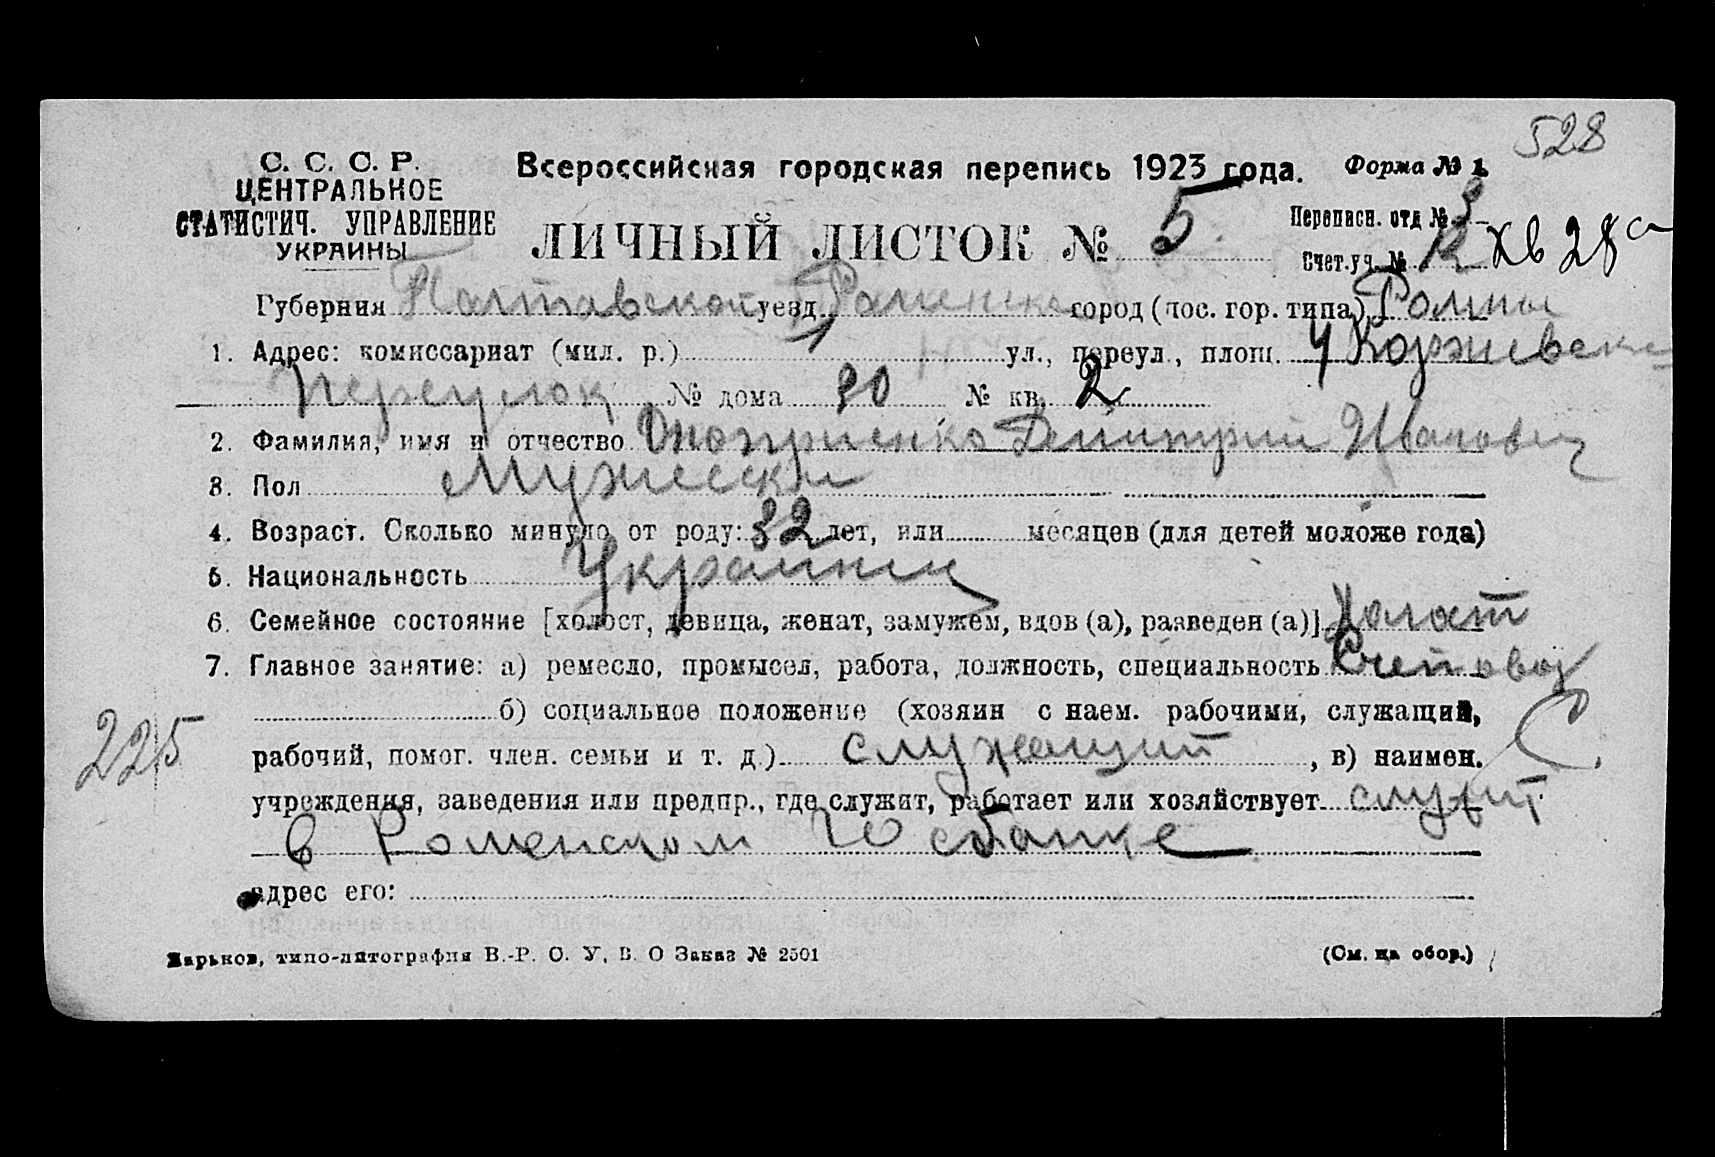 528
С. С. С. Р.
ЦЕНТРАЛЬНОЕ
СТАТИСТИЧ. УПРАВЛЕНИЕ
УКРАИНЫ
Всероссийская городская перепись 1923 года. Форма № 1.
ЛИЧНЫЙ ЛИСТОК № 5
Переписн. отд № 3
Счет.уч. № 12 хв 28а
Губерния Полтавской уезд Роменско город (пос. гор. типа) Ромны
1. Адрес: комиссариат (мил. р.) 1 ул., переул., площ. 4 Коржевски
переулок № дома 30 № кв. 2
2. Фамилия, имя и отчество Оноприенко Димитрий Иванович
3. Пол Мужески
4. Возраст. Сколько минуло от роду: 32 лет, или месяцев (для детей моложе года)
5. Национальность Украинец
6. Семейное состояние [холост, девица, женат, замужем, вдов (а), разведен (а)] Холост
7. Главное занятие: а) ремесло, промысел, работа, должность, специальность Счетовод
б) социальное положение (хозяин с наем. рабочими, служащий,
рабочий, помог. член. семьи и т. д.) служащий, в) наимен.
С.
225
учреждения, заведения или предпр., где служит, работает или хозяйствует служит
в Роменском Госбанке
адрес его:
Харьков, типо-литография В.-Р. О. У. В. О Заказ № 2501 (См. на обор.)